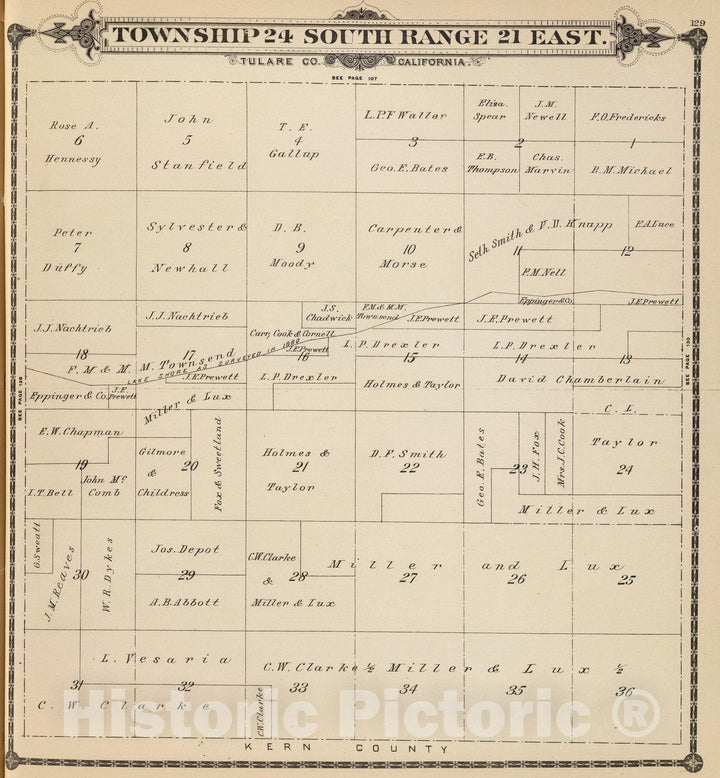 129
TOWNSHIP 24 SOUTH RANGE 21 EAST.
TULARE CO. CALIFORNIA.
SEE PAGE 107
Rose A.
6
Hennessy
John
5
Stanfield
T. E.
4
Gallup
L.P.F Waller
3
Geo. E. Bates
Eliza.
Spear
J.M.
Newell
2
E.B.
Thompson
Chas.
Marvin
F.O. Fredericks
1
B.M. Michael
Peter
7
Duffy
Sylvester &
8
Newhall
D.B.
9
Moody
Carpenter &
10
Morse
Seth Smith & V.D. Knapp
11
F.M. Nell
E.A. Lace
12
Eppinger & Co.
J.E. Prewett
J.J. Nachtrieb
18
J.J. Nachtrieb
17
F. M. & M. M. Townsend
LAKE SHORE AS SURVEYED IN 1880
J.E. Prewett
J.S.
Chadwick
Carr, Cook & Cornell
J.E. Prewett
16
L.P. Drexler
F.M. & M.M.
Townsend
J.E. Prewett
L.P. Drexler
15
Holmes & Taylor
J.E. Prewett
L.P. Drexler
14
13
David Chamberlain
SEE PAGE 128
SEE PAGE 130
Eppinger & Co.
J.E.
Prewett
Miller & Lux
E.W. Chapman
19
I.T. Bell
John Mc
Comb
Gilmore
&
Childress
20
Fox & Sweetland
Holmes &
21
Taylor
D.F. Smith
22
Geo. E. Bates
23
J.H. Fox
Mrs. J.C. Cook
C. L.
Taylor
24
Miller & Lux
G. Sweatt
J.M. Reaves
30
W.R. Dykes
Jos. Depot
29
A.B. Abbott
C.W. Clarke
&
28
Miller & Lux
Miller and Lux
27
26
25
L. Vesaria
31
32
C. W. Clarke
C.W. Clarke
C.W. Clarke ½ Miller & Lux ½
33
34
35
36
KERN COUNTY
Historic Pictoric ®